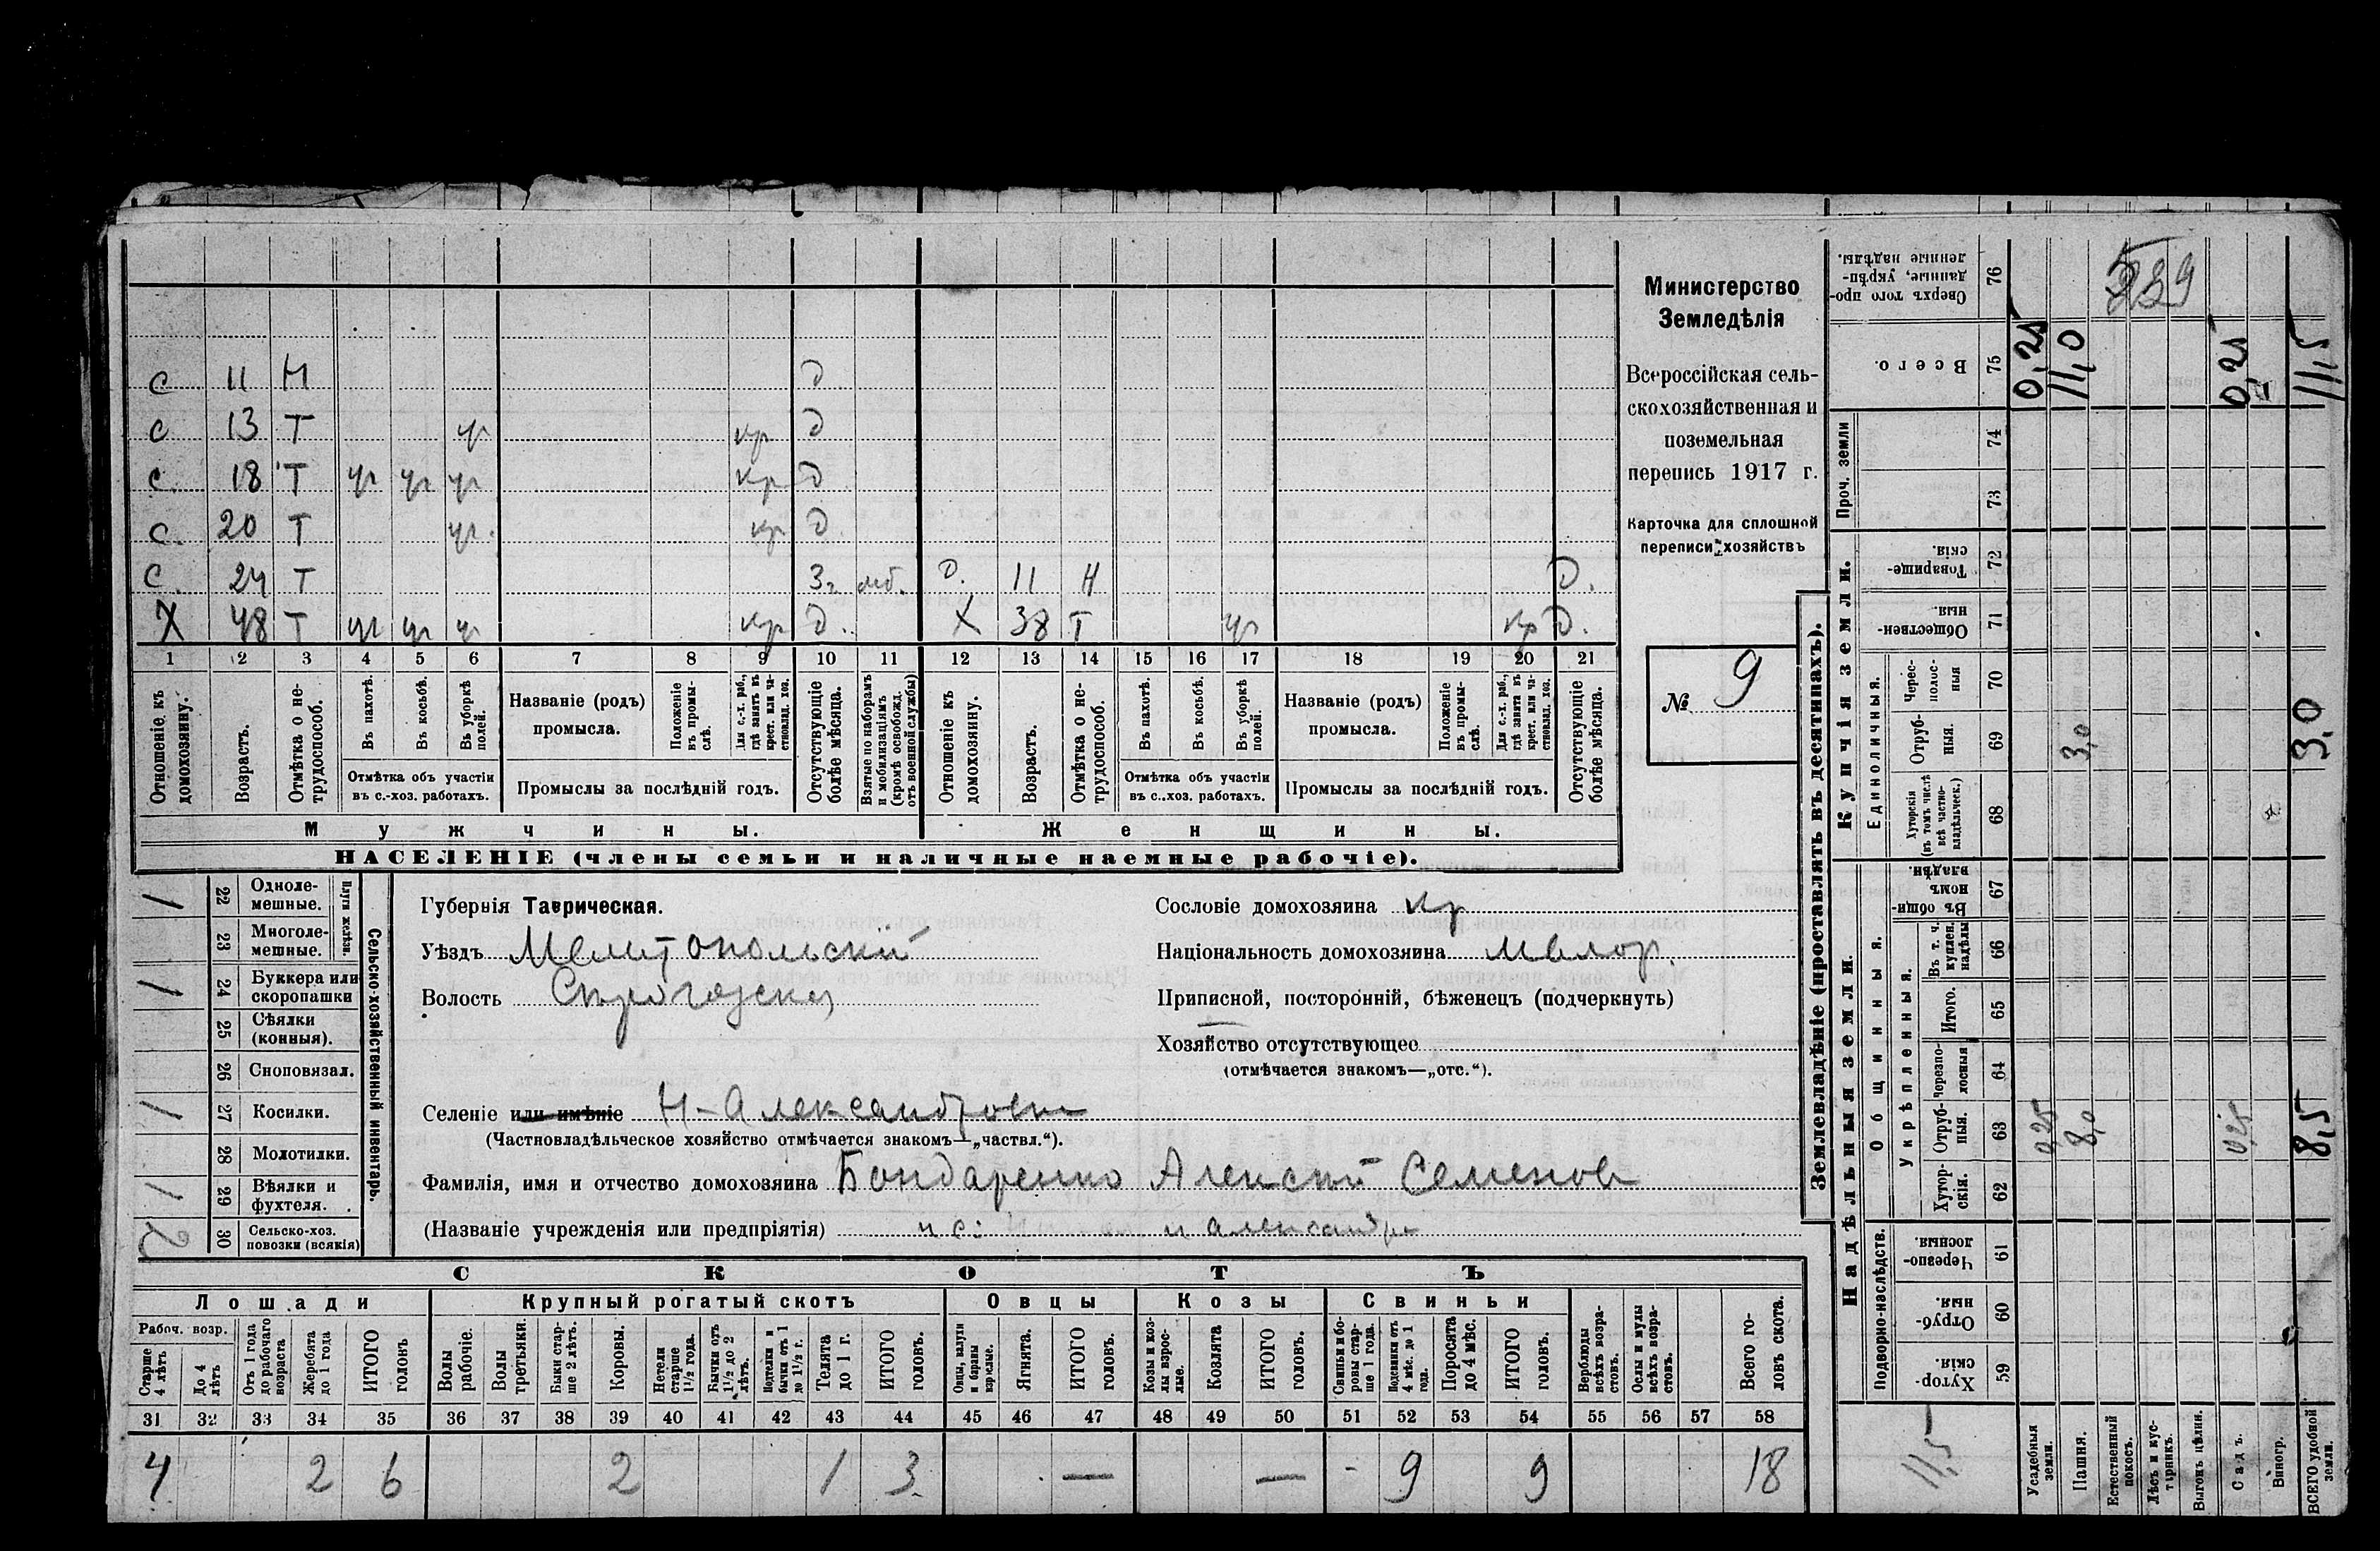 с 11 Н д
с 13 Т ч кр д
с. 18 Т ч ч ч кр д
с. 20 Т ч. кр д.
с. 24 Т 3г. моб. д. 11 Н д.
Х 48 Т ч ч ч кр д. Х 38 Т ч кр д.
1 2 3 4 5 6 7 8 9 10 11 12 13 14 15 16 17 18 19 20 21
Отношеніе къ домохозяину.
Возрастъ.
Отмѣтка о не-
трудоспособ.
Въ пахотѣ.
Въ косьбѣ.
Въ уборкѣ
полей.
Отмѣтка объ участіи
въ с.-хоз. работахъ.
Названіе (родъ)
промысла.
Положеніе
въ промы-
слѣ.
Для с.-х. раб.,
гдѣ занятъ въ
крест. или ча-
стновлад. хоз.
Промыслы за послѣдній годъ.
Отсутствующіе
болѣе мѣсяца.
Взятые по наборамъ
и мобилизаціямъ
(кромѣ освобожд.
отъ военной службы)
Отношеніе къ
домохозяину.
Возрастъ.
Отмѣтка о не-
трудоспособ.
Въ пахотѣ.
Въ косьбѣ.
Въ уборкѣ
полей.
Отмѣтка объ участіи
въ с.-хоз. работахъ.
Названіе (родъ)
промысла.
Положеніе
въ промы-
слѣ.
Для с.-х. раб.,
гдѣ занята въ
крест. или ча-
стновлад. хоз.
Промыслы за послѣдній годъ.
Отсутствующіе
болѣе мѣсяца.
Мужчины.
Женщины.
НАСЕЛЕНІЕ (члены семьи и наличные наемные рабочіе).
Министерство
Земледѣлія
Всероссійская сель-
скохозяйственная и
поземельная
перепись 1917 г.
Карточка для сплошной
переписи хозяйствъ
№ 9
1 22 Одноле-
мешные.
23 Многоле-
мешные.
Плуги желѣзн.
1 24 Буккера или
скоропашки
25 Сѣялки
(конныя).
26 Сноповязал.
1 27 Косилки.
28 Молотилки.
1 29 Вѣялки и
фухтеля.
2 30 Сельско-хоз.
повозки (всякія)
Сельско-хозяйственный инвентарь.
Губернія Таврическая.
Уѣздъ Мелитопольскій
Волость
Сословіе домохозяина кр
Національность домохозяина малор.
Приписной, посторонній, бѣженецъ (подчеркнуть)
Хозяйство отсутствующее
(отмѣчается знакомъ—„отс.“).
Селеніе или имѣніе Н-Александровка
(Частновладѣльческое хозяйство отмѣчается знакомъ—„частвл.“).
Фамилія, имя и отчество домохозяина Бондаренко Алексѣй Семенов
(Названіе учрежденія или предпріятія)
СКОТЪ
Лошади
Рабоч. возр.
Старше
4 лѣтъ
До 4
лѣтъ
Отъ 1 года
до рабочаго
возраста
Жеребята
до 1 года
ИТОГО
головъ
Крупный рогатый скотъ
Волы
рабочіе.
Волы
третьяки.
Быки стар-
ше 2 лѣтъ.
Коровы.
Нетели
старше
1½ года.
Бычки отъ
1½ до 2
лѣтъ.
Подтелки и
бычки отъ 1
до 1½ г.
Телята
до 1 г.
ИТОГО
головъ.
Овцы
Овцы, валухи
и бараны
взрослые.
Ягнята.
ИТОГО
головъ.
Козы
Козы и коз-
лы взрос-
лые.
Козлята
ИТОГО
головъ.
Свиньи
Свиньи и бо-
ровы стар-
ше 1 года.
Подсвинки отъ
4 мѣс. до 1
года.
Поросята
до 4 мѣс.
ИТОГО
головъ.
Верблюды
всѣхъ возра-
стовъ.
Ослы и мулы
всѣхъ возра-
стовъ.
Всего го-
ловъ скота.
31 32 33 34 35 36 37 38 39 40 41 42 43 44 45 46 47 48 49 50 51 52 53 54 55 56 57 58
4 2 6 2 1 3 — — - 9 9 18
Землевладѣніе (проставлять въ десятинахъ).
Сверхъ того про-
данные, укрѣп-
ленные надѣлы.
76
Всего.
75 0,25 11,0 0,25 11,5
Проч. земли
74
73
Купчія земли.
Товарище-
скія.
72
Обществен-
ныя.
71
Единоличныя.
Черес-
полос-
ныя
70
Отруб-
ныя.
69 3,0 3,0
Хуторскія
(въ томъ числѣ
всѣ частно-
владѣльческ.)
68
Надѣльныя земли.
Общинныя.
Въ общин-
номъ
владѣн.
67
Укрѣпленныя.
Въ т. ч.
куплен.
надѣлы
66
Итого.
65
Черезпо-
лосныя
64
Отруб-
ныя.
63 0,25 8,0 0,25 8,5
Хутор-
скія.
62
Подворно-наслѣдств.
Черезпо-
лосныя.
61
Отруб-
ныя.
60
Хутор-
скія.
59
11,5
Усадебныя
земли.
Пашня.
Естественный
покосъ.
Лѣсъ и кус-
тарникъ.
Выгонъ цѣлин.
Садъ.
Виногр.
ВСЕГО удобной
земли.